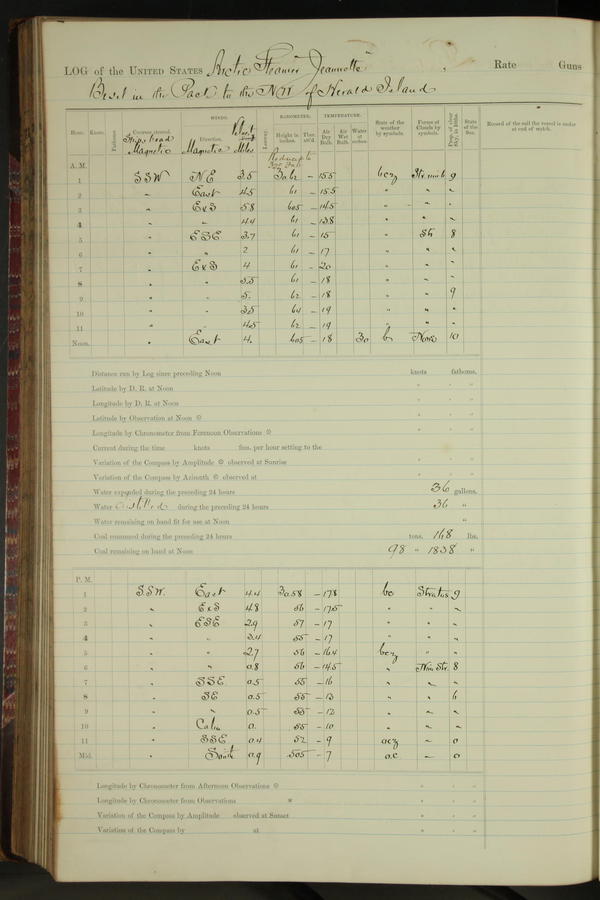 LOG of the UNITED STATES Arctic Steamer Jeannette, Rate Guns
Beset in the Pack to the NW of Herald Island
WINDS. BAROMETER. TEMPERATURE.
Hour. Knots. Fathoms. Courses steered. Direction. Velocity Leeway. Height in inches. Ther. att'd. Air Dry Bulb. Air Wet Bulb. Water at surface. State of the weather by symbols. Forms of Clouds by symbols. Prop. of clear Sky, in 10ths. State of the Sea. Record of the sail the vessel is under at end of watch.
Ships head Magnetic Magnetic Miles
A. M.
1 SSW NE 3.5 30.62 -15.5 bcz 9
2 " East 4.5 61 -15.5 " " "
3 " ExS 5.8 605 -14.5 " " "
4 " " 4.4 61 -13.8 " " "
5 " ESE 3.7 61 -15 " Str 8
6 " " 2 61 -17 " " "
7 " ExS 4 61 -20 " " "
8 " " 3.5 61 -18 " " "
9 " " 5. 62 -18 " " 9
10 " " 3.5 64 -19 " " "
11 " " 4.5 62 -19 " " "
Noon. " East 4. 605 -18 30 b None 10
Distance run by Log since preceding Noon knots fathoms.
Latitude by D. R. at Noon ° ' "
Longitude by D. R. at Noon ° ' "
Latitude by Observation at Noon ☉ ° ' "
Longitude by Chronometer from Forenoon Observations ☉ ° ' "
Current during the time knots fms. per hour setting to the
Variation of the Compass by Amplitude ☉ observed at Sunrise ° ' "
Variation of the Compass by Azimuth ☉ observed at ° ' "
Water expended during the preceding 24 hours 36 gallons.
Water distilled during the preceding 24 hours 36 "
Water remaining on hand fit for use at Noon "
Coal consumed during the preceding 24 hours tons, 168 lbs.
Coal remaining on hand at Noon 98 " 1838 "
P. M.
1 S.S.W. East 4.4 30.58 -17.8 bc Stratus 9
2 " ExS 4.8 56 -17.5 " " "
3 " ESE 2.9 57 -17 " " "
4 " " 3.4 55 -17 " " "
5 " " 2.7 56 -16.4 bcz " "
6 " " 0.8 56 -14.5 " 8
7 " SSE 0.5 55 -16 " " "
8 " SE 0.5 55 -13 " " 6
9 " " 0.5 55 -12 " " "
10 " Calm 0. 55 -10 " " "
11 " SSE 0.4 52 -9 ocz " 0
Mid. " South 0.9 505 -7 o.c. " 0
Longitude by Chronometer from Afternoon Observations ☉ ° ' "
Longitude by Chronometer from Observations * ° ' "
Variation of the Compass by Amplitude observed at Sunset ° ' "
Variation of the Compass by at ° ' "